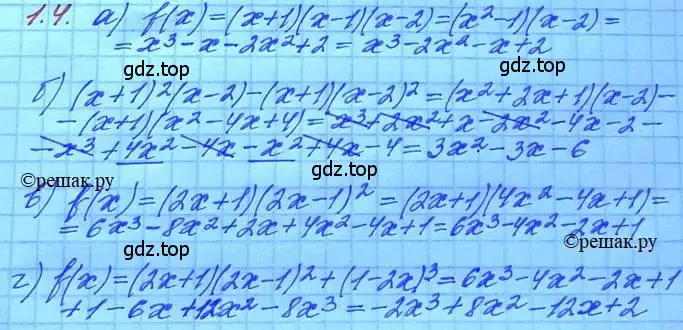 1.4. а) f(x)=(x+1)(x-1)(x-2)=(x²-1)(x-2)=
=x³-x-2x²+2=x³-2x²-x+2
gdz.top
gdz.top
б) (x+1)²(x-2)-(x+1)(x-2)²=(x²+2x+1)(x-2)-
-(x+1)(x²-4x+4)=x³+2x²+x-2x²-4x-2-
-x³+4x²-4x-x²+4x-4=3x²-3x-6
gdz.top
gdz.top
©решак.ру
в) f(x)=(2x+1)(2x-1)²=(2x+1)(4x²-4x+1)=
=6x³-8x²+2x+4x²-4x+1=6x³-4x²-2x+1
©решак.ру
gdz.top
gdz.top
г) f(x)=(2x+1)(2x-1)²+(1-2x)³=6x³-4x²-2x+1
+1-6x+12x²-8x³=-2x³+8x²-12x+2
gdz.top
gdz.top